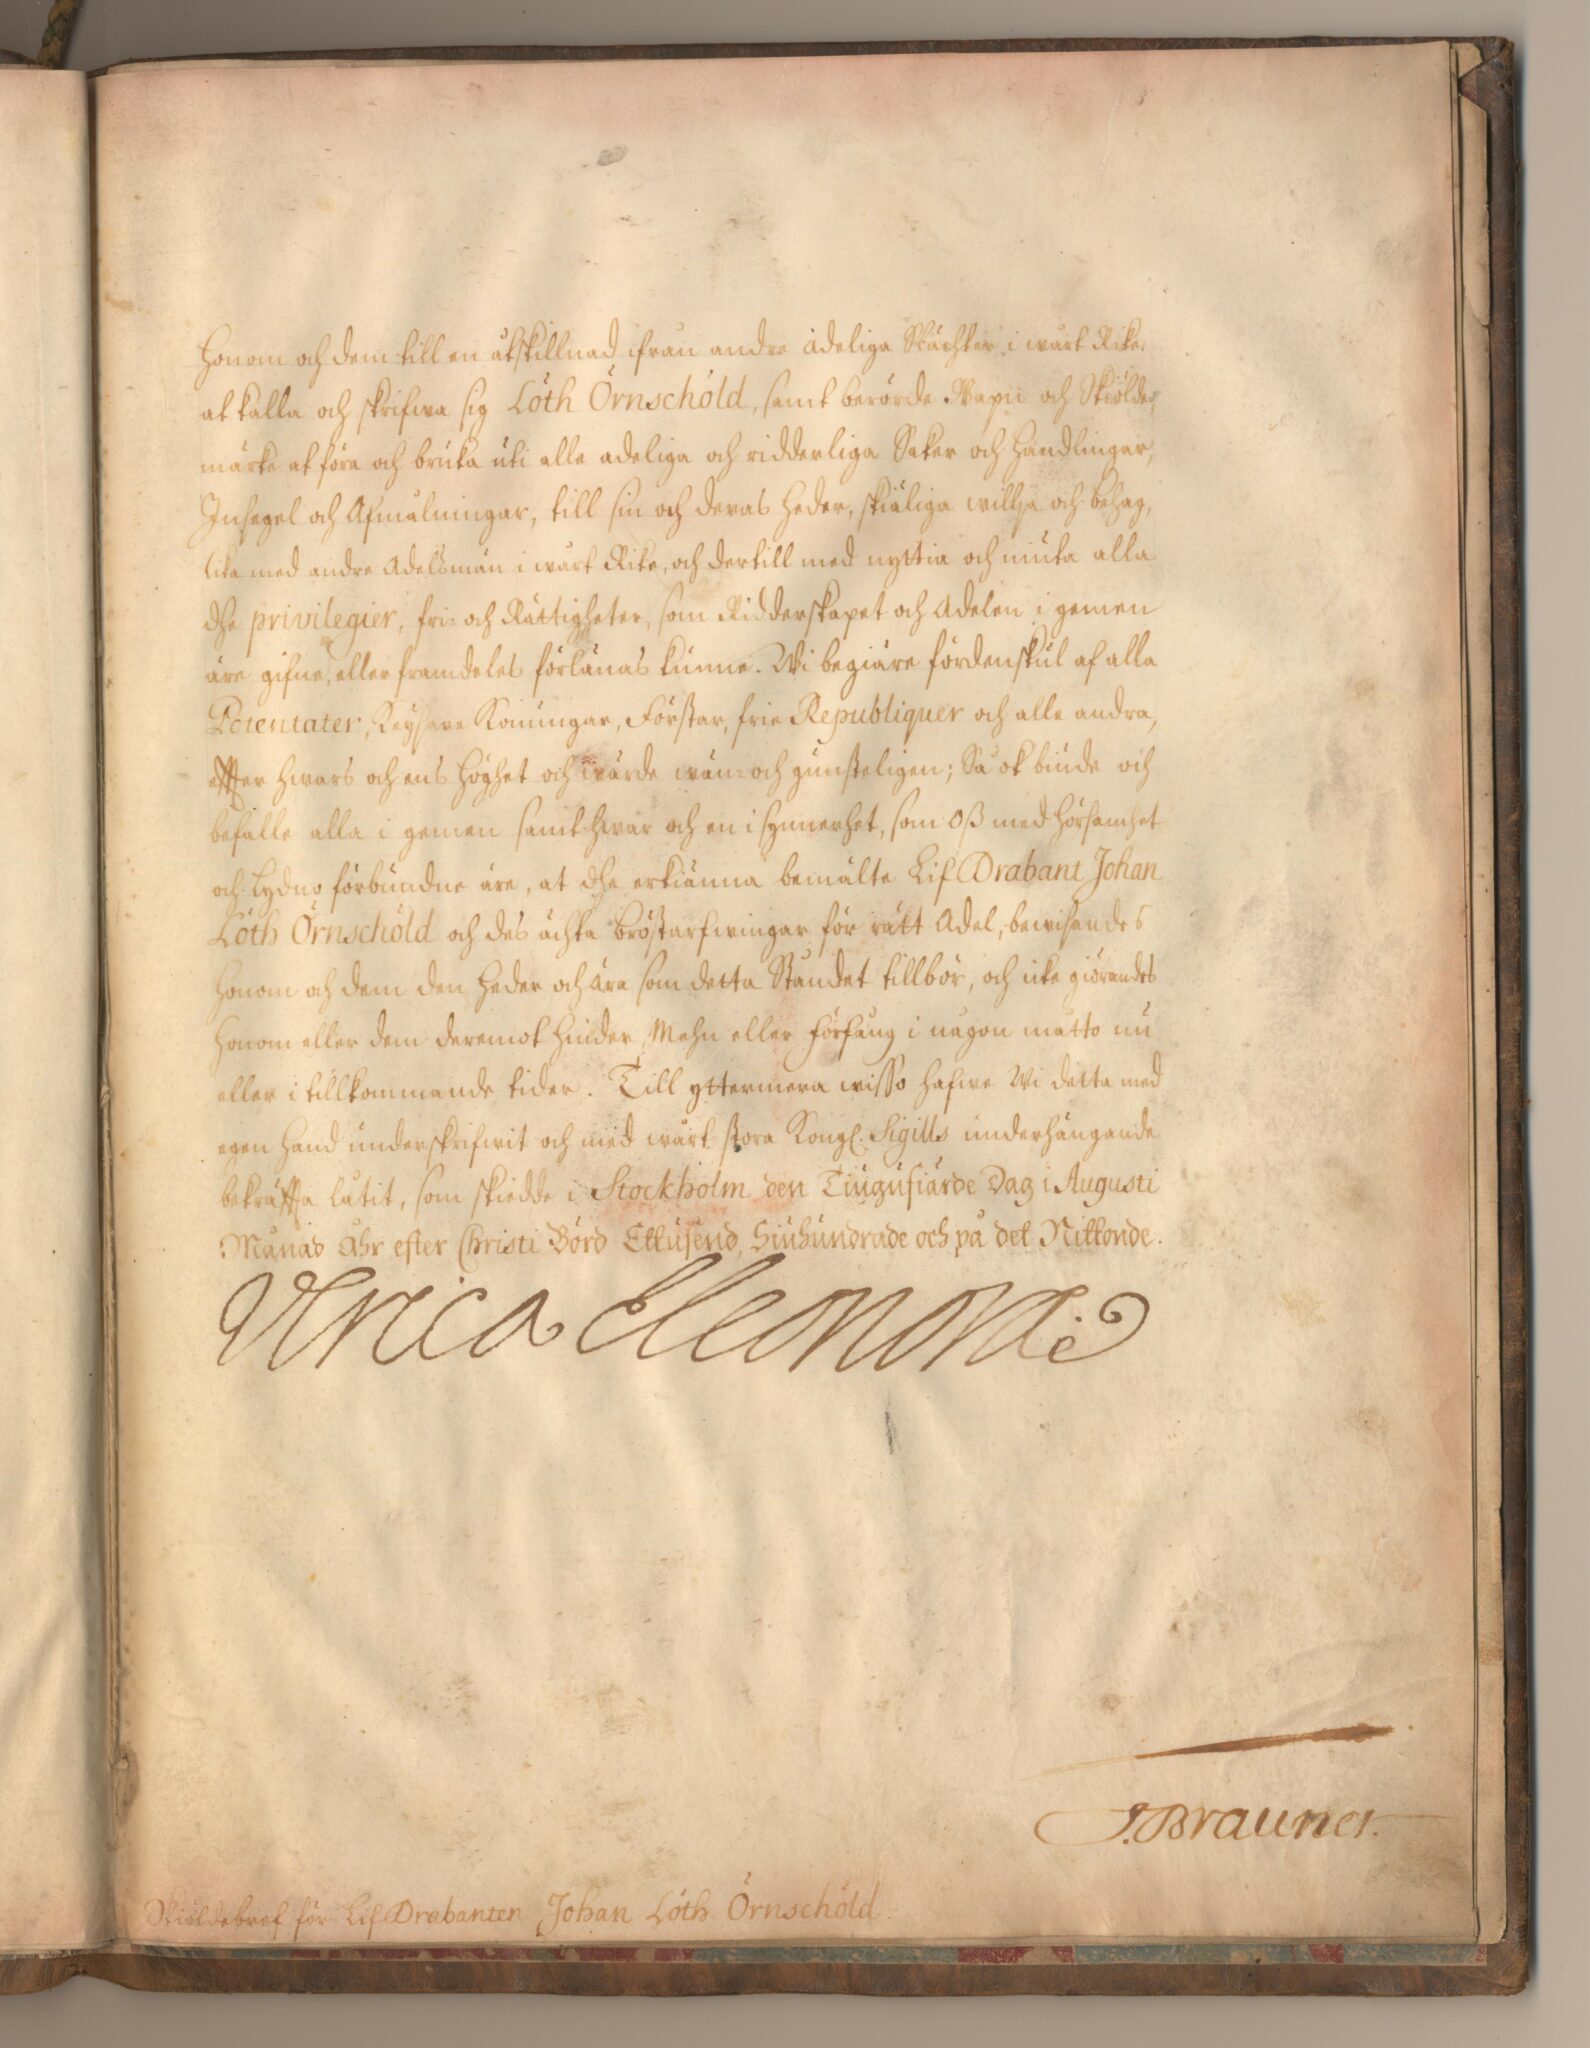 honom och dem till en åtskillnad ifrån andre adeliga Slächter i wårt Rike,
at kalla och skrifwa sig Löth Örnschöld, samt berörde Wapn och Skiölde=
märke at föra och bruka uti alle adeliga och ridderliga Saker och handlingar,
Insegel och Afmålningar, till sin och deras heder, skiäliga willja och behag,
lika med andre Adelsmän i wårt Rike, och dertill med nyttia och niuta alla
dhe privilegier, fri= och Rättigheter, som Ridderskapet och Adelen i gemen
äre gifne, eller framdeles förlänas kunne. Wi begiäre fördenskul af alla
Potentater, Keysare Konungar, Förstar, frie Republiquer och alle andra,
effter hwars och ens höghet och wärde wän= och gunsteligen; Så ok biude och
befalle alla i gemen samt hwar och en i synnerhet, som Oß med hörsamhet
och Lydno förbundne äre, at dhe erkiänna bemälte Lif Drabant Johan
Löth Örnschöld och des ächta bröstarfwingar för rätt Adel, bewisandes
honom och dem den heder och ära som detta Ståndet tillbör, och icke giörandes
honom eller dem deremot hinder, Mehn eller förfång i någon måtto nu
eller i tillkommande tider. Till yttermera wisso hafwe Wi detta med
egen hand underskrifwit och med wårt stora Kongl. Sigills underhängande
bekräffta låtit, som skiedde i Stockholm den Tiugufiärde Dag i Augusti
Månad Åhr efter Christi Börd Ettusend, Siuhundrade och på det Nittonde.
Ulrica Eleonora
J. Brauner.
Skiöldebref för Lif Drabanten Johan Löth Örnschöld.